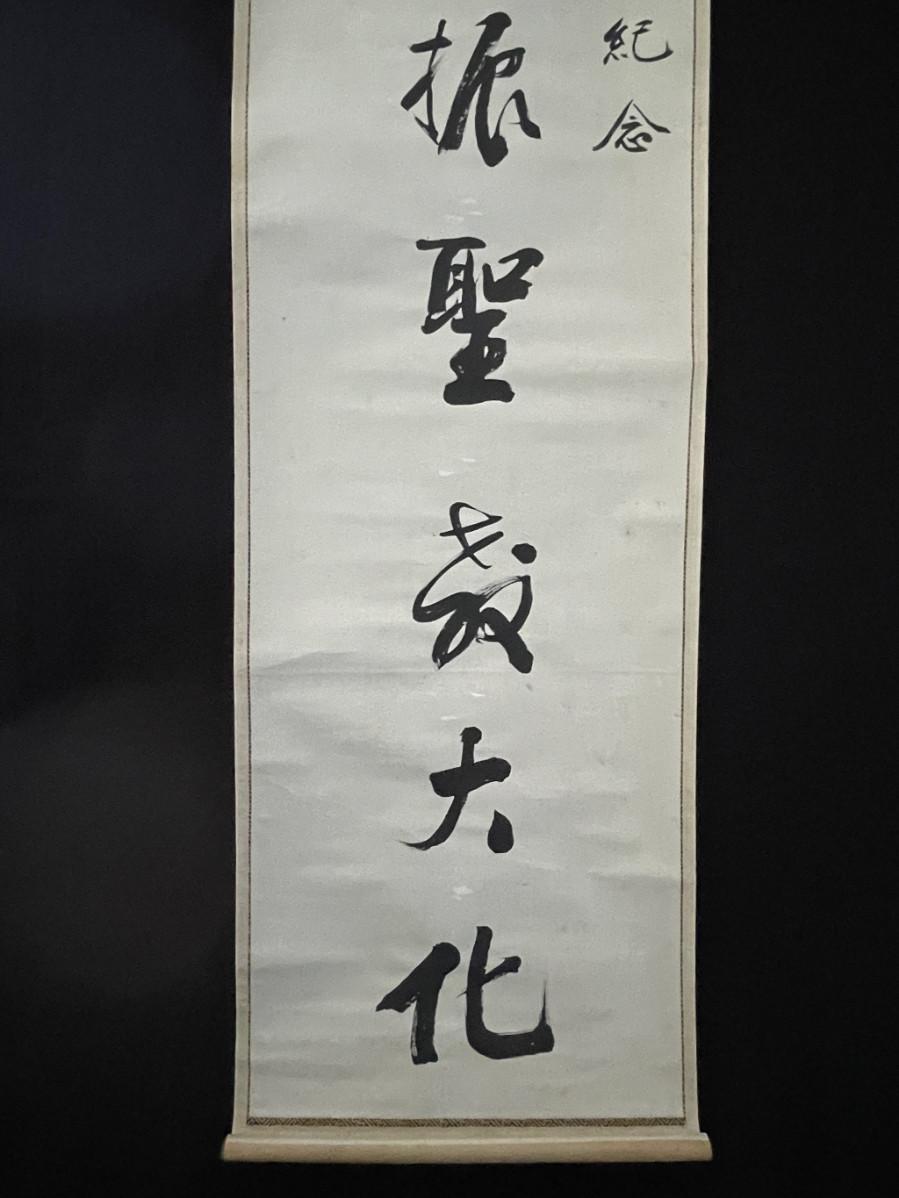 紀念
振聖教大化